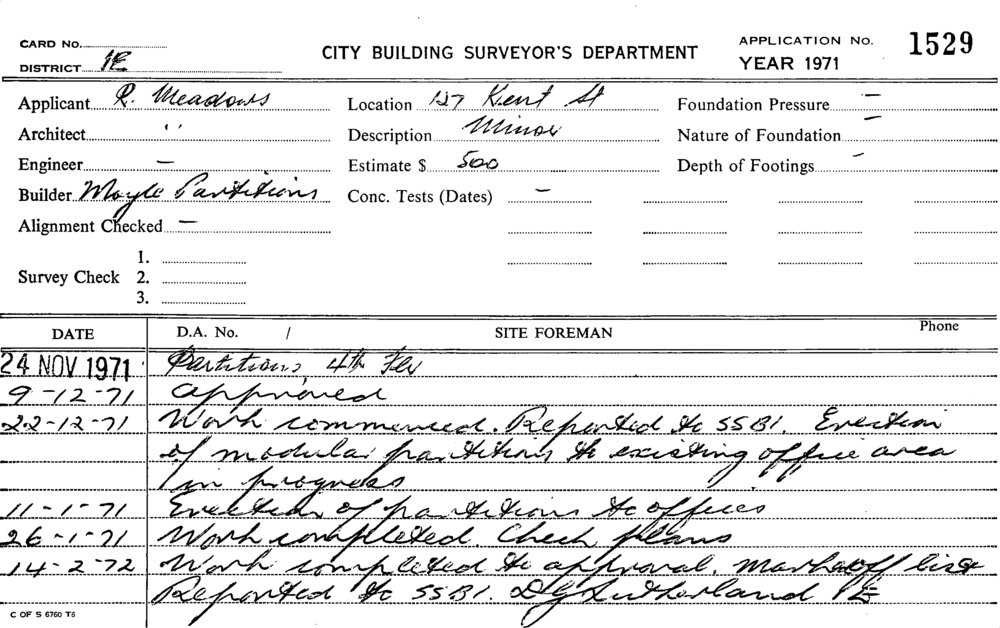 CARD No.
DISTRICT 1E
CITY BUILDING SURVEYOR'S DEPARTMENT
APPLICATION No. 1529
YEAR 1971
Applicant R. Meadows
Location 127 Kent St
Foundation Pressure –
Architect "
Description Minor
Nature of Foundation –
Engineer –
Estimate $ 500
Depth of Footings –
Builder Moyle Partitions
Conc. Tests (Dates) –
Alignment Checked –
Survey Check 1.
2.
3.
DATE D.A. No. / SITE FOREMAN Phone
24 NOV 1971 Partitions, 4th Flr
9-12-71 approved
22-12-71 Work commenced. Reported to SSBI. Erection
of modular partitions to existing office area
in progress
11-1-71 Erection of partitions to offices
26-1-71 Work completed. Check plans
14-2-72 Work completed to approval. Marked off list
Reported to SSBI. DG Sutherland 1E
C OF S 6760 T6